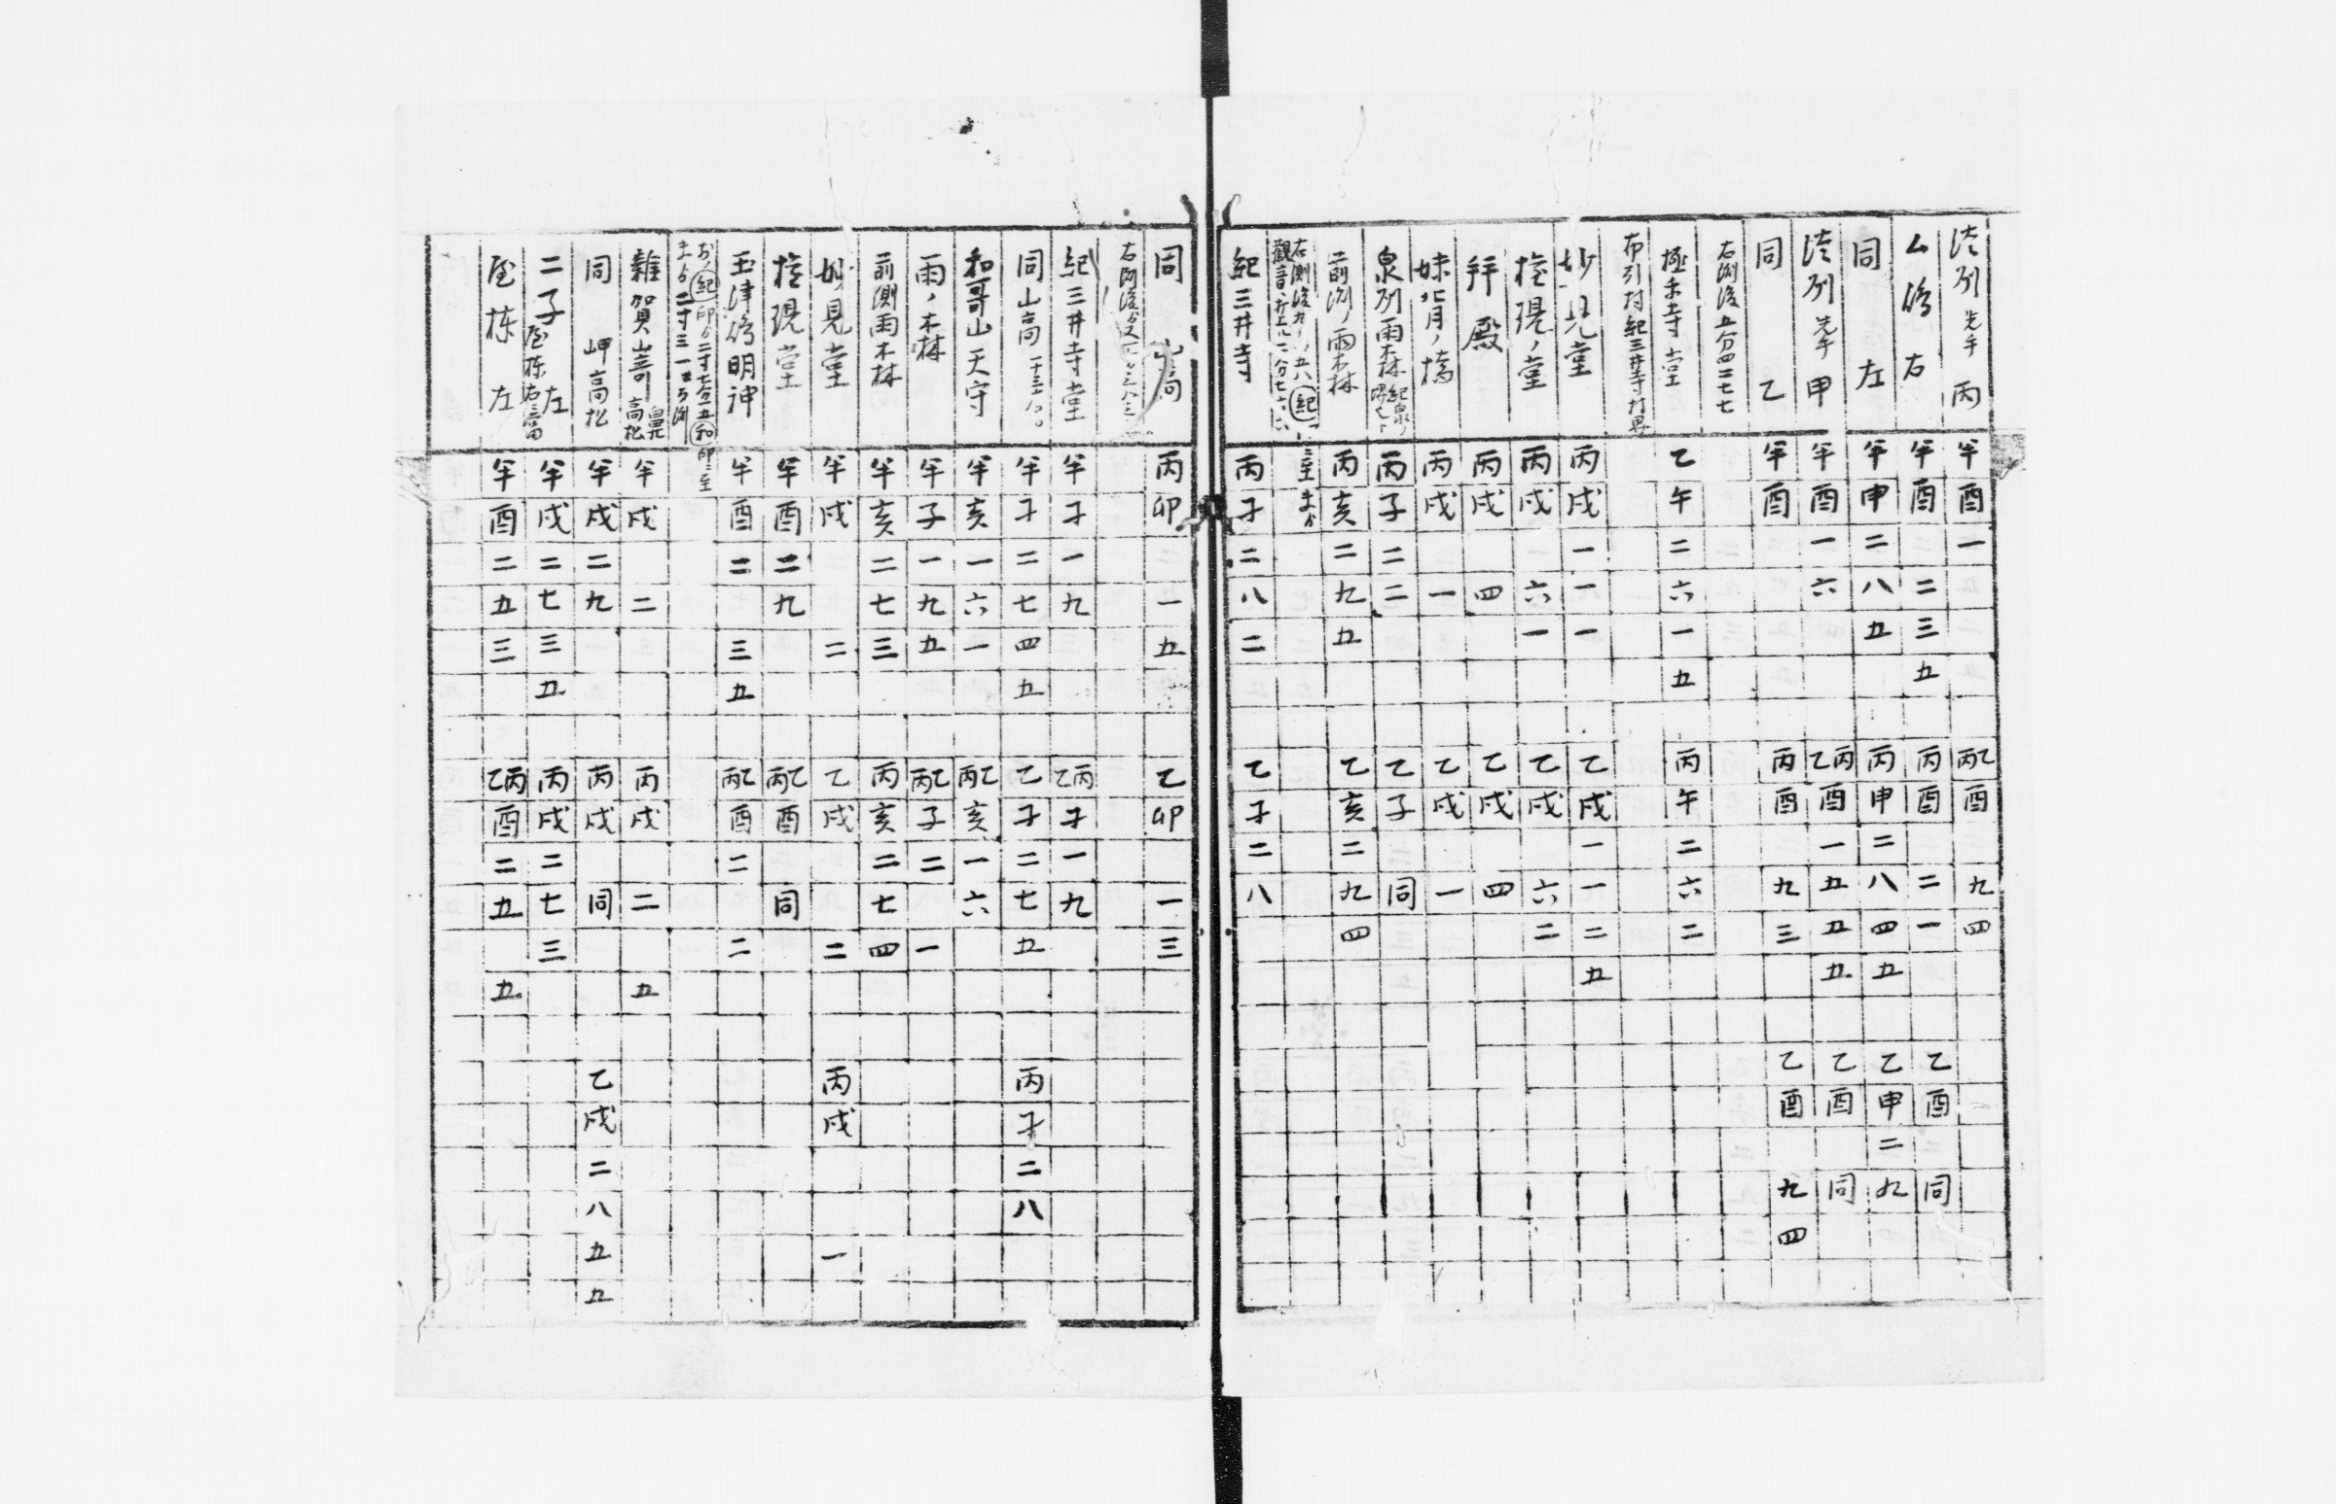 淡刕 先手 丙 半酉一 丙乙酉九四
ム修 右 半酉二三五 丙酉二一 乙酉同
同 左 半申二八五 丙申二八四五 乙申二九
淡刕 先手 甲 半酉一六 乙丙酉一五五五 乙酉同
同 乙 半酉 丙酉九三 乙酉九四
右測後五分四二七七
極楽寺堂 乙午二六一五 丙午二六二
布引村紀三井寺村界
妙見堂 丙戌一一一 乙戌一一二五
権現ノ堂 丙戌六一 乙戌六二
拝殿 丙戌四 乙戌四
妹背ノ橋 丙戌一 乙戌一
泉刕雨森 丙子二二 乙子同
前測ノ雨森 丙亥二九五 乙亥二九四
紀三井寺 丙子二八二 乙子二八
同 山高 丙卯一五 乙卯一三
紀三井寺堂 半子一九 乙丙子一九
同山高 半子二七四五 乙子二七五 丙子二八
和哥山天守 半亥一六一 丙乙亥一六
雨ノ森 半子一九五 丙乙子二一
前測雨森 半亥二七三 丙亥二七四
妙見堂 半戌二 乙戌二 丙戌一
権現堂 半酉二九 丙乙酉同
玉津嶋明神 半酉二三五 丙乙酉二二
雑賀崎 鼻高松 半戌二 丙戌二五
同 岬高松 半戌二九 丙戌同 乙戌二八五五
二子 左 半戌二七三五 丙戌二七三
屋棟 左 半酉二五三 乙丙酉二五五